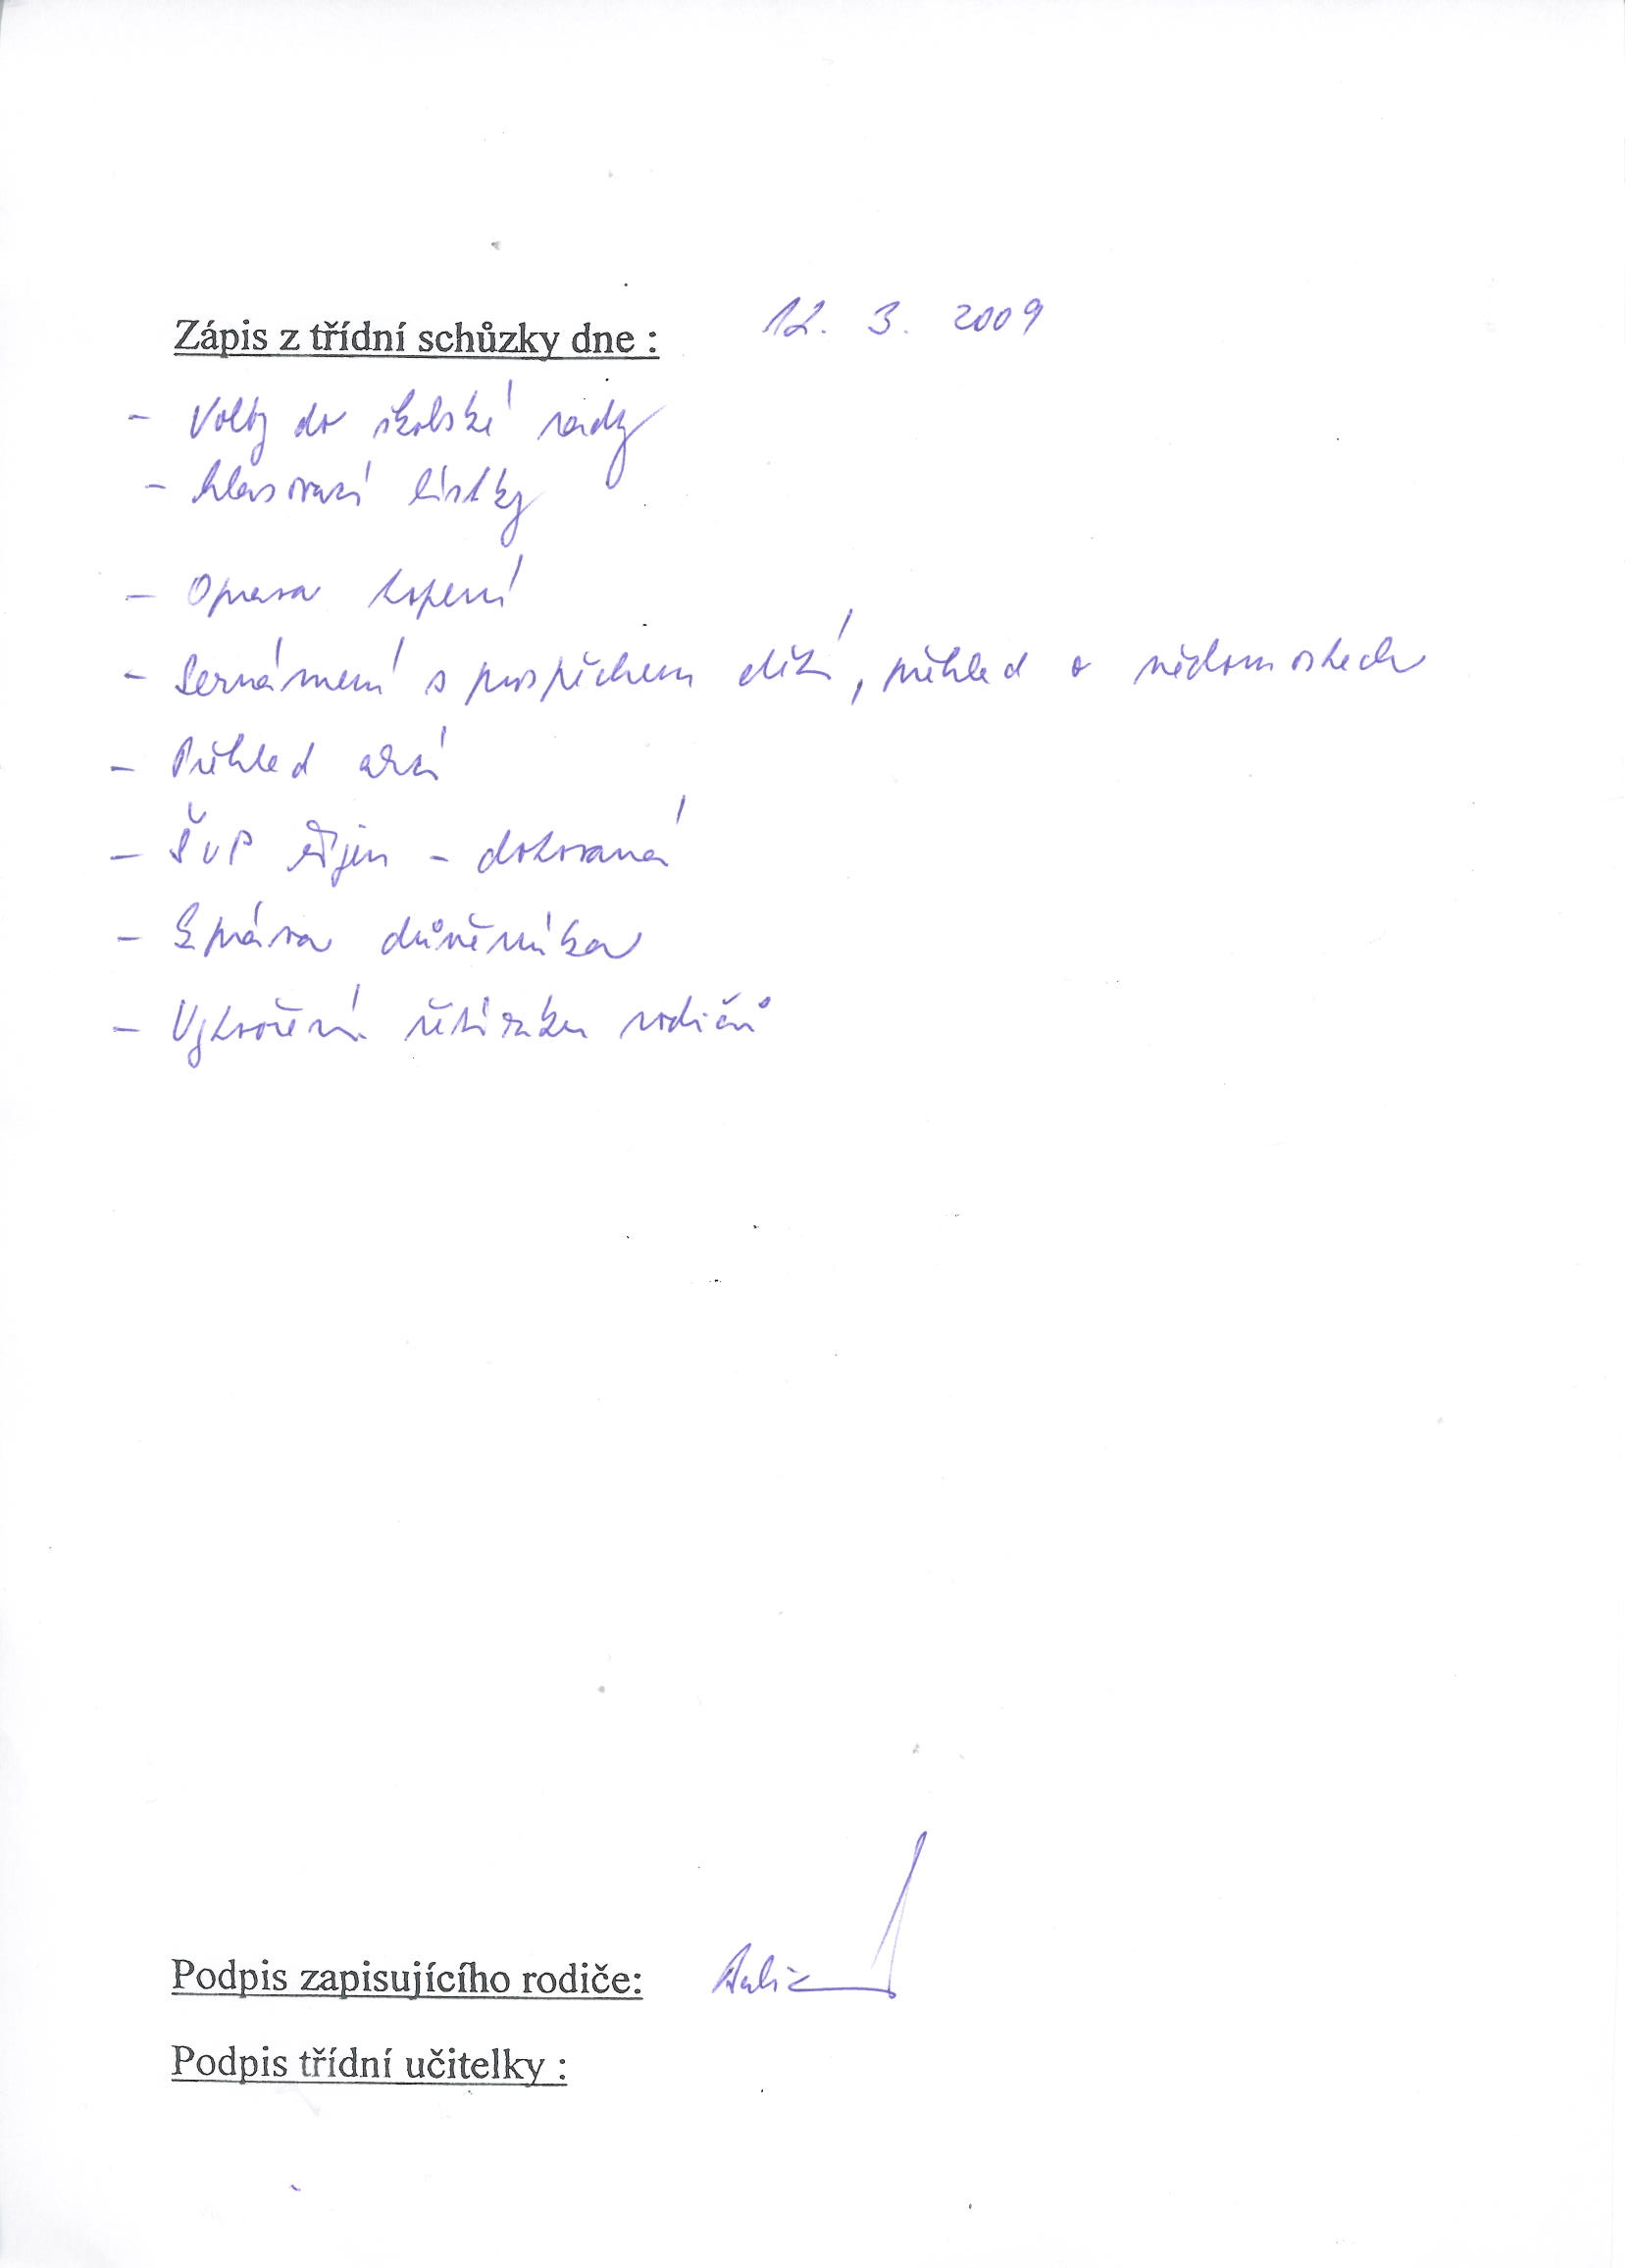 Zápis z třídní schůzky dne : 12. 3. 2009
- Volby do školské rady
- hlasovací lístky
- Oprava topení
- Seznámení s prospěchem dětí, přehled o vědomostech
- Přehled akcí
- ŠVP říjen - dotovaná
- Zpráva důvěrníka
- Vytvoření řetízku rodičů
Podpis zapisujícího rodiče:
Podpis třídní učitelky :